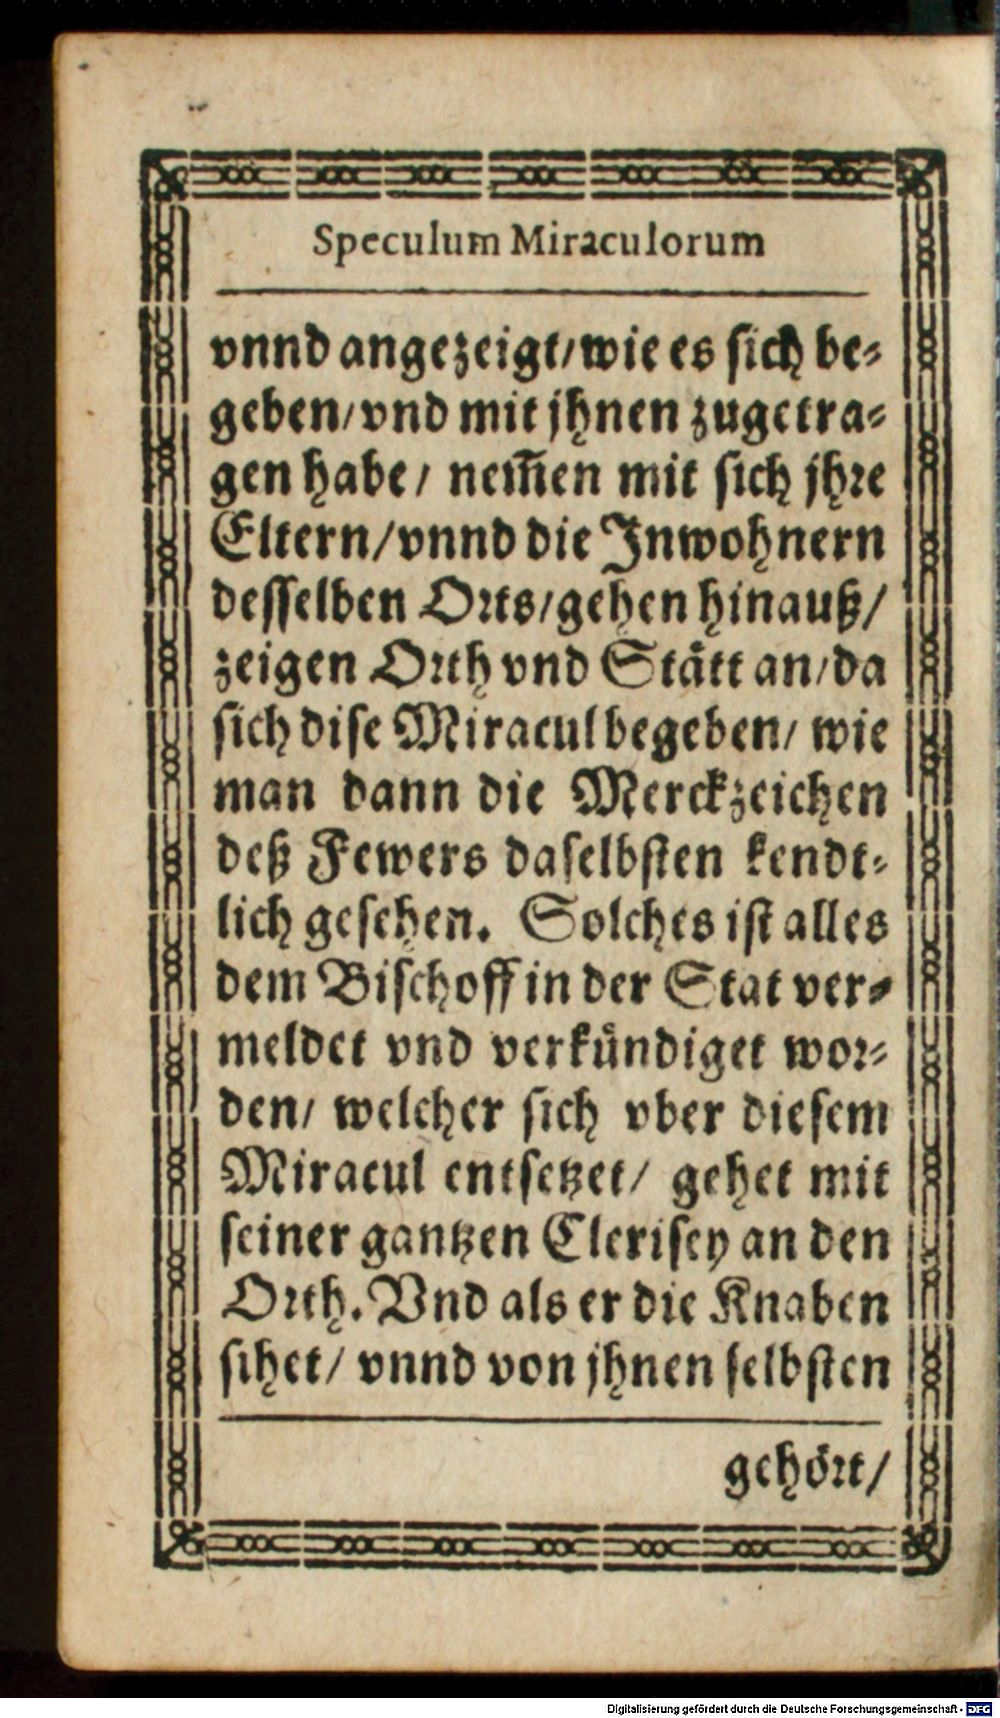 Speculum Miraculorum
vnnd angezeigt/wie es sich be-
geben/vnd mit jhnen zugetra-
gen habe/ nem̃en mit sich jhre
Eltern/vnnd die Inwohnern
desselben Orts/gehen hinauß/
zeigen Orth vnd Stätt an/da
sich dise Miracul begeben/ wie
man dann die Merckzeichen
deß Fewers daselbsten kendt-
lich gesehen. Solches ist alles
dem Bischoff in der Stat ver-
meldet vnd verkündiget wor-
den/ welcher sich vber diesem
Miracul entsetzet/ gehet mit
seiner gantzen Clerisey an den
Orth. Vnd als er die Knaben
sihet/ vnnd von jhnen selbsten
gehört/
Digitalisierung gefördert durch die Deutsche Forschungsgemeinschaft - DFG